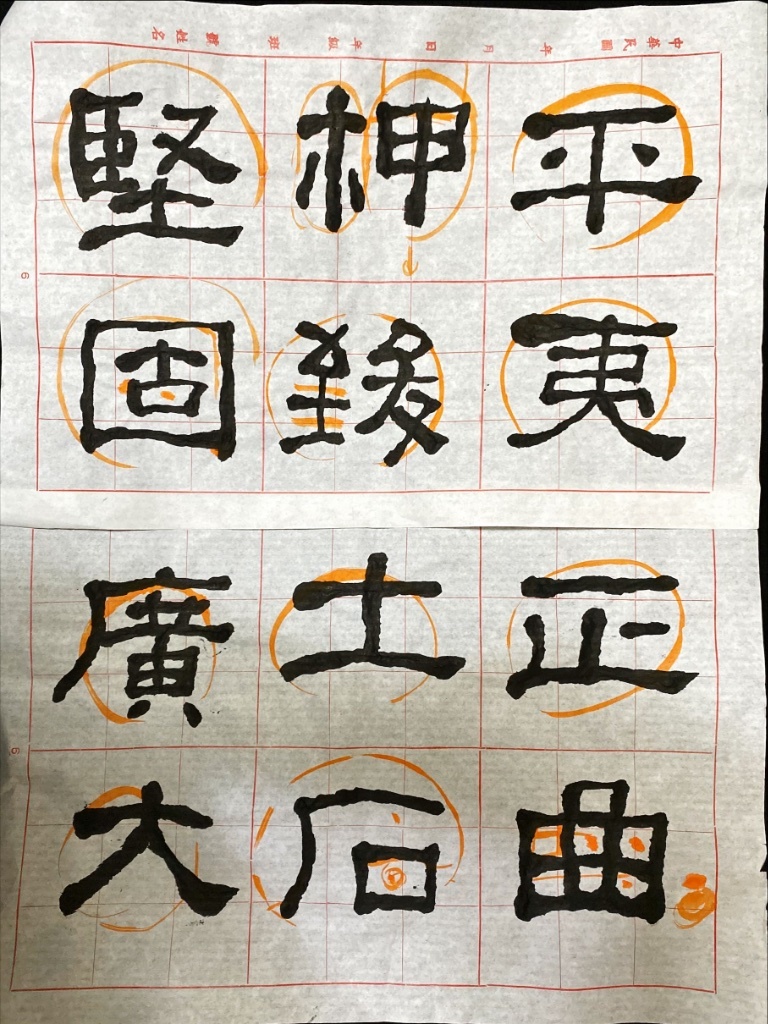 中華民國 年 月 日 年級 班 號 姓名
平夷正曲
柙致土石
堅固廣大
6
6